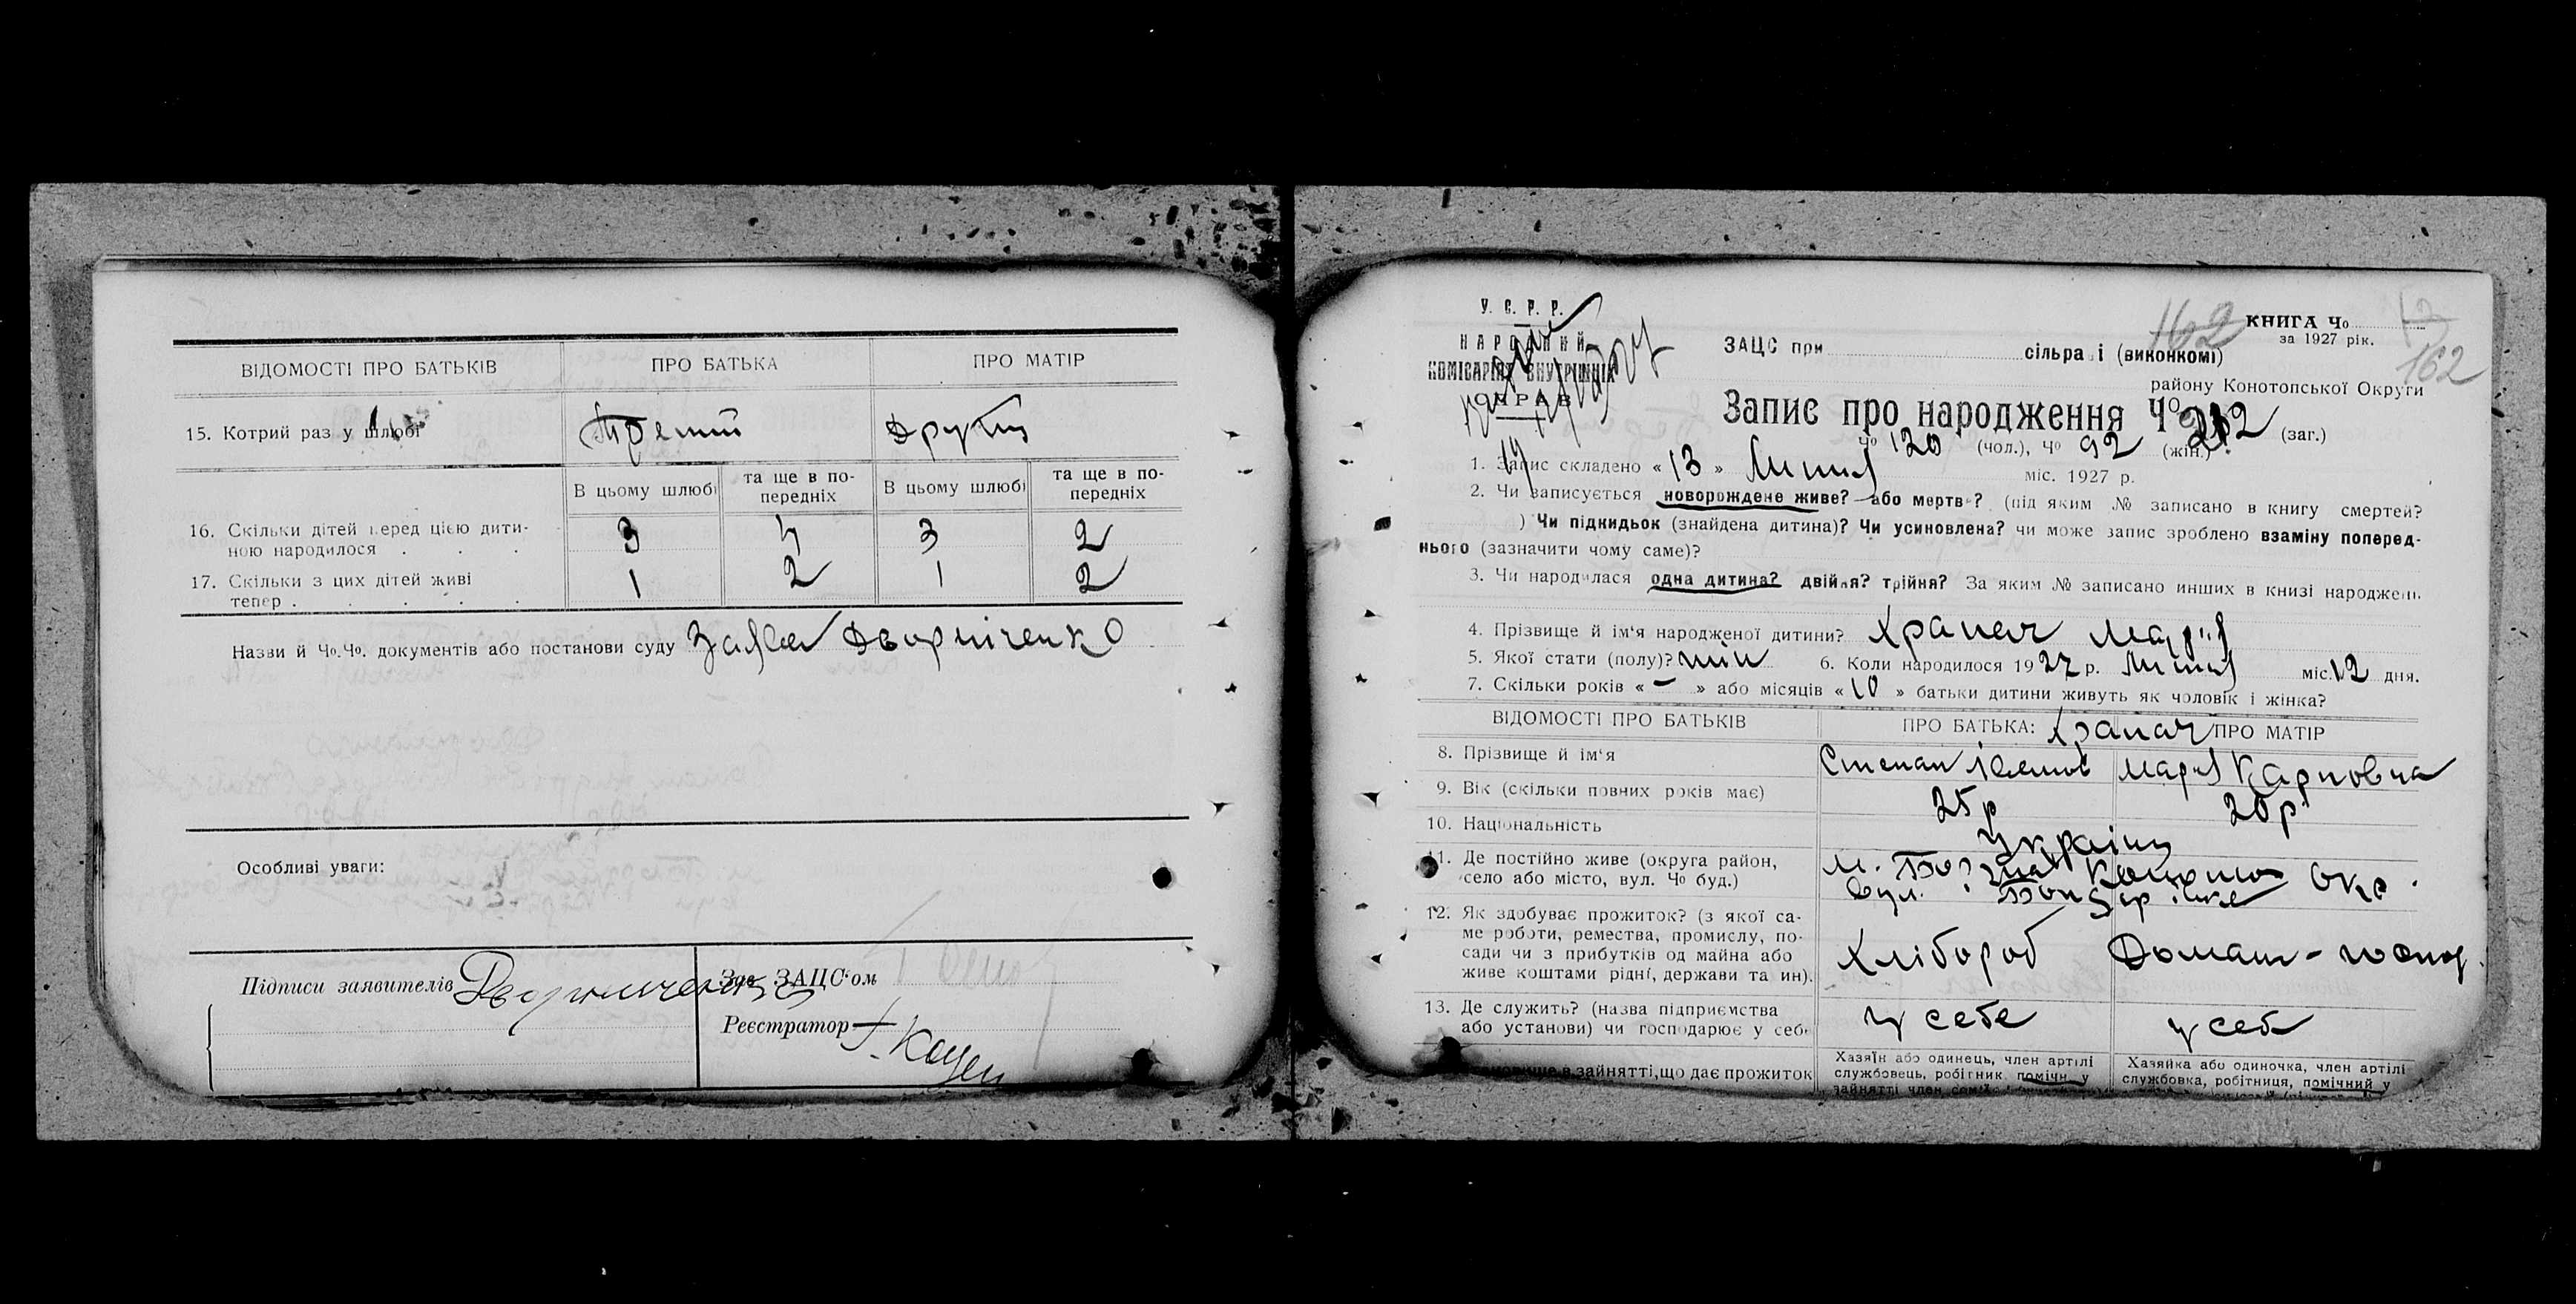 ВІДОМОСТІ ПРО БАТЬКІВ ПРО БАТЬКА ПРО МАТІР
15. Котрий раз у шлюбі Третій Другий
В цьому шлюбі та ще в по-передніх В цьому шлюбі та ще в по-передніх
16. Скільки дітей перед цією дити-
ною народилося . . . 3 4 3 2
17. Скільки з цих дітей живі
тепер . . . . . 1 2 1 2
Назви й Чо.Чо. документів або постанови суду Заява Дворніченко
Особливі уваги:
Підписи заявителів Дворниченко Зав. ЗАЦС'ом
Реєстратор
У. С. Р. Р.
НАРОДНИЙ
КОМІСАРІЯТ ВНУТРІШНІХ
СПРАВ
КНИГА Чо
за 1927 рік.
162
162
ЗАЦС при сільраді (виконкомі)
району Конотопської Округи
Запис про народження Чо 212 (заг.)
Чо 120 (чол.), Чо 92 (жін.)
1. Запис складено « 13 » Липня міс. 1927 р.
2. Чи записується новорождене живе? або мертве? (під яким № записано в книгу смертей?
) Чи підкидьок (знайдена дитина)? Чи усиновлена? чи може запис зроблено взаміну поперед-
нього (зазначити чому саме)?
3. Чи народилася одна дитина? двійня? трійня? За яким № записано инших в книзі народжень
4. Прізвище й ім'я народженої дитини? Храпач Марія
5. Якої стати (полу)? жін 6. Коли народилося 1927 р. Липня міс. 12 дня.
7. Скільки років « - » або місяців « 10 » батьки дитини живуть як чоловік і жінка?
ВІДОМОСТІ ПРО БАТЬКІВ ПРО БАТЬКА: Храпач ПРО МАТІР
8. Прізвище й ім'я Степан Марія Карповна
9. Вік (скільки повних років має) 25 р 20 р
10. Національність Україн
11. Де постійно живе (округа район, м. Борзна Коното Окр.
село або місто, вул. Чо буд.) вул.
12. Як здобуває прожиток? (з якої са-
ме роботи, ремества, промислу, по-
сади чи з прибутків од майна або Хлібороб Домаш-господ.
живе коштами рідні, держави та ин).
13. Де служить? (назва підприємства
або установи) чи господарює у себе у себе у себе
Хазяїн або одинець, член артілі Хазяйка або одиночка, член артілі
в зайнятті, що дає прожиток службовець, робітник, помічн. у службовка, робітниця, помічний у